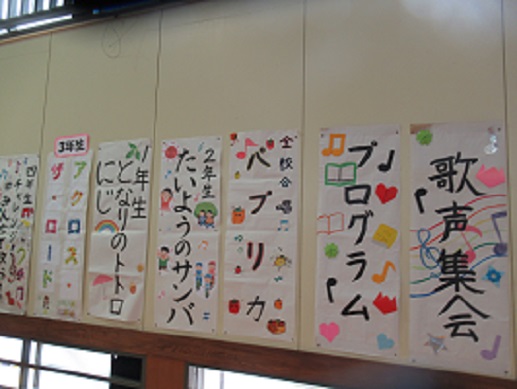 歌声集会
プログラム
全校合唱
パプリカ
2年生
たいようのサンバ
1年生
となりのトトロ
にじ
3年生
アクロス・ザ・ロード
四年生